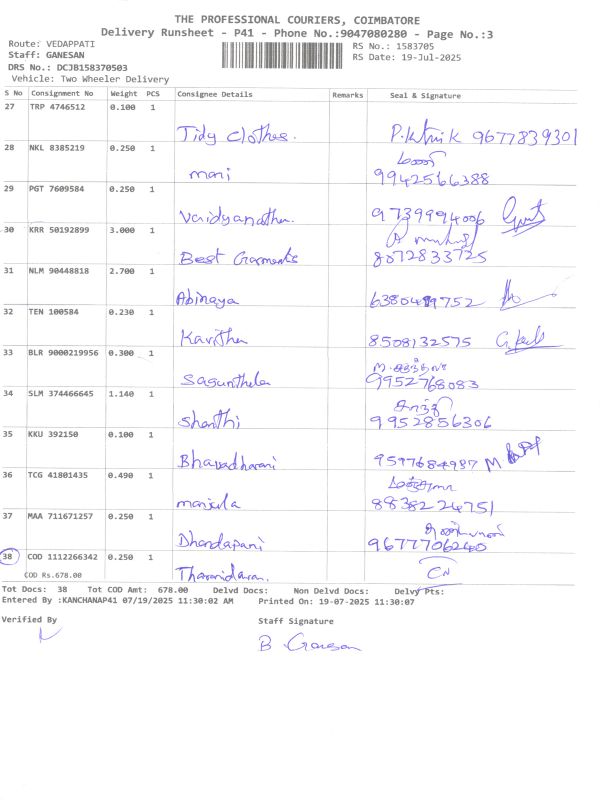 THE PROFESSIONAL COURIERS, COIMBATORE
Delivery Runsheet - P41 - Phone No.:9047080280 - Page No.:3
Route: VEDAPPATI RS No.: 1583705
Staff: GANESAN RS Date: 19-Jul-2025
DRS No.: DCJB158370503
Vehicle: Two Wheeler Delivery
S No Consignment No Weight PCS Consignee Details Remarks Seal & Signature
27 TRP 4746512 0.100 1
Tidy clothes. 9677839301
28 NKL 8385219 0.250 1
mani 9942566388
29 PGT 7609584 0.250 1
Vaidyanathan. 9739994006
30 KRR 50192899 3.000 1
Best Garments 8072833725
31 NLM 90448818 2.700 1
Abinaya
32 TEN 100584 0.230 1
Kavitha 8508132575
33 BLR 9000219956 0.300 1
Sasunthela 9952768083
34 SLM 374466645 1.140 1
சாந்தி
Shanthi 9952856306
35 KKU 392150 0.100 1
Bhavadharani 9597684987 M
36 TCG 41801435 0.490 1
manjula 8838224751
37 MAA 711671257 0.250 1
Dhandapani 9677706240
38 COD 1112266342 0.250 1
COD Rs.678.00 Tharanidaran. CN
Tot Docs: 38 Tot COD Amt: 678.00 Delvd Docs: Non Delvd Docs: Delvy Pts:
Entered By :KANCHANAP41 07/19/2025 11:30:02 AM Printed On: 19-07-2025 11:30:07
Verified By Staff Signature
B Ganesan